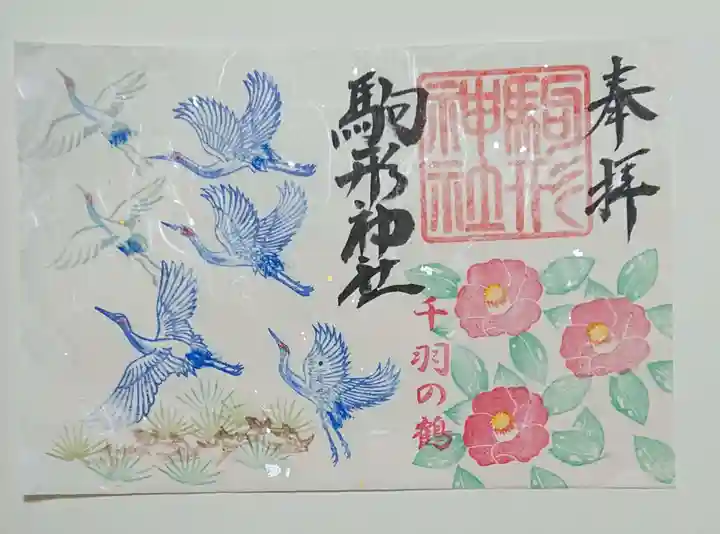 奉拝
駒形
神社
駒形神社
千羽の鶴